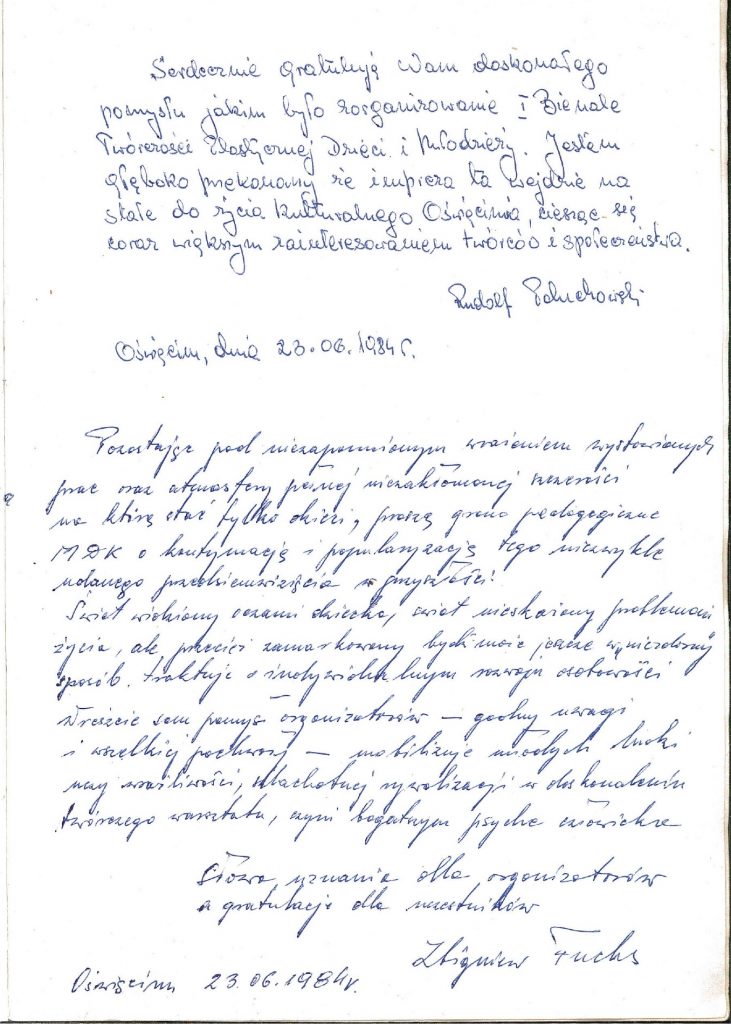 Serdecznie gratuluję Wam doskonałego
pomysłu jakim było zorganizowanie I Bienale
Twórczości Plastycznej Dzieci i Młodzieży. Jestem
głęboko przekonany że impreza ta wejdzie na
stałe do życia kulturalnego Oświęcimia, ciesząc się
coraz większym zainteresowaniem twórców i społeczeństwa.
Rudolf
Oświęcim, dnia 23.06.1984 r.
Pozostając pod niezapomnianym wrażeniem wystawionych
prac oraz atmosfery pełnej niezakłamanej szczerości
na którą stać tylko dzieci, proszę grono pedagogiczne
MDK o kontynuację i popularyzację tego niezwykle
udanego przedsięwzięcia w przyszłości!
Świat widziany oczami dziecka, świat nieskażony problemami
życia, ale przecież zamarkowany być może jeszcze w
sposób. traktuje o indywidualnym rozwoju osobowości
Wreszcie sam pomysł organizatorów – godny uwagi
i wszelkiej pochwały – mobilizuje młodych ludzi
uczy wrażliwości, szlachetnej rywalizacji w doskonaleniu
twórczego warsztatu, czyni bogatszym psyche człowiecze
Słowa uznania dla organizatorów
a gratulacje dla uczestników
Zbigniew Fuchs
Oświęcim 23.06.1984 r.